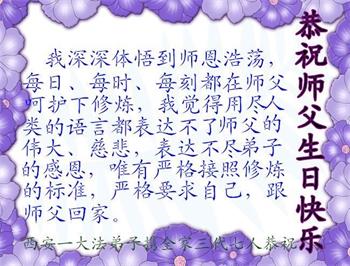 恭祝师父生日快乐
我深深体悟到师恩浩荡，
每日、每时、每刻都在师父
呵护下修炼，我觉得用尽人
类的语言都表达不了师父的
伟大、慈悲，表达不尽弟子
的感恩，唯有严格按照修炼
的标准，严格要求自己，跟
师父回家。
西安一大法弟子携全家三代七人恭祝